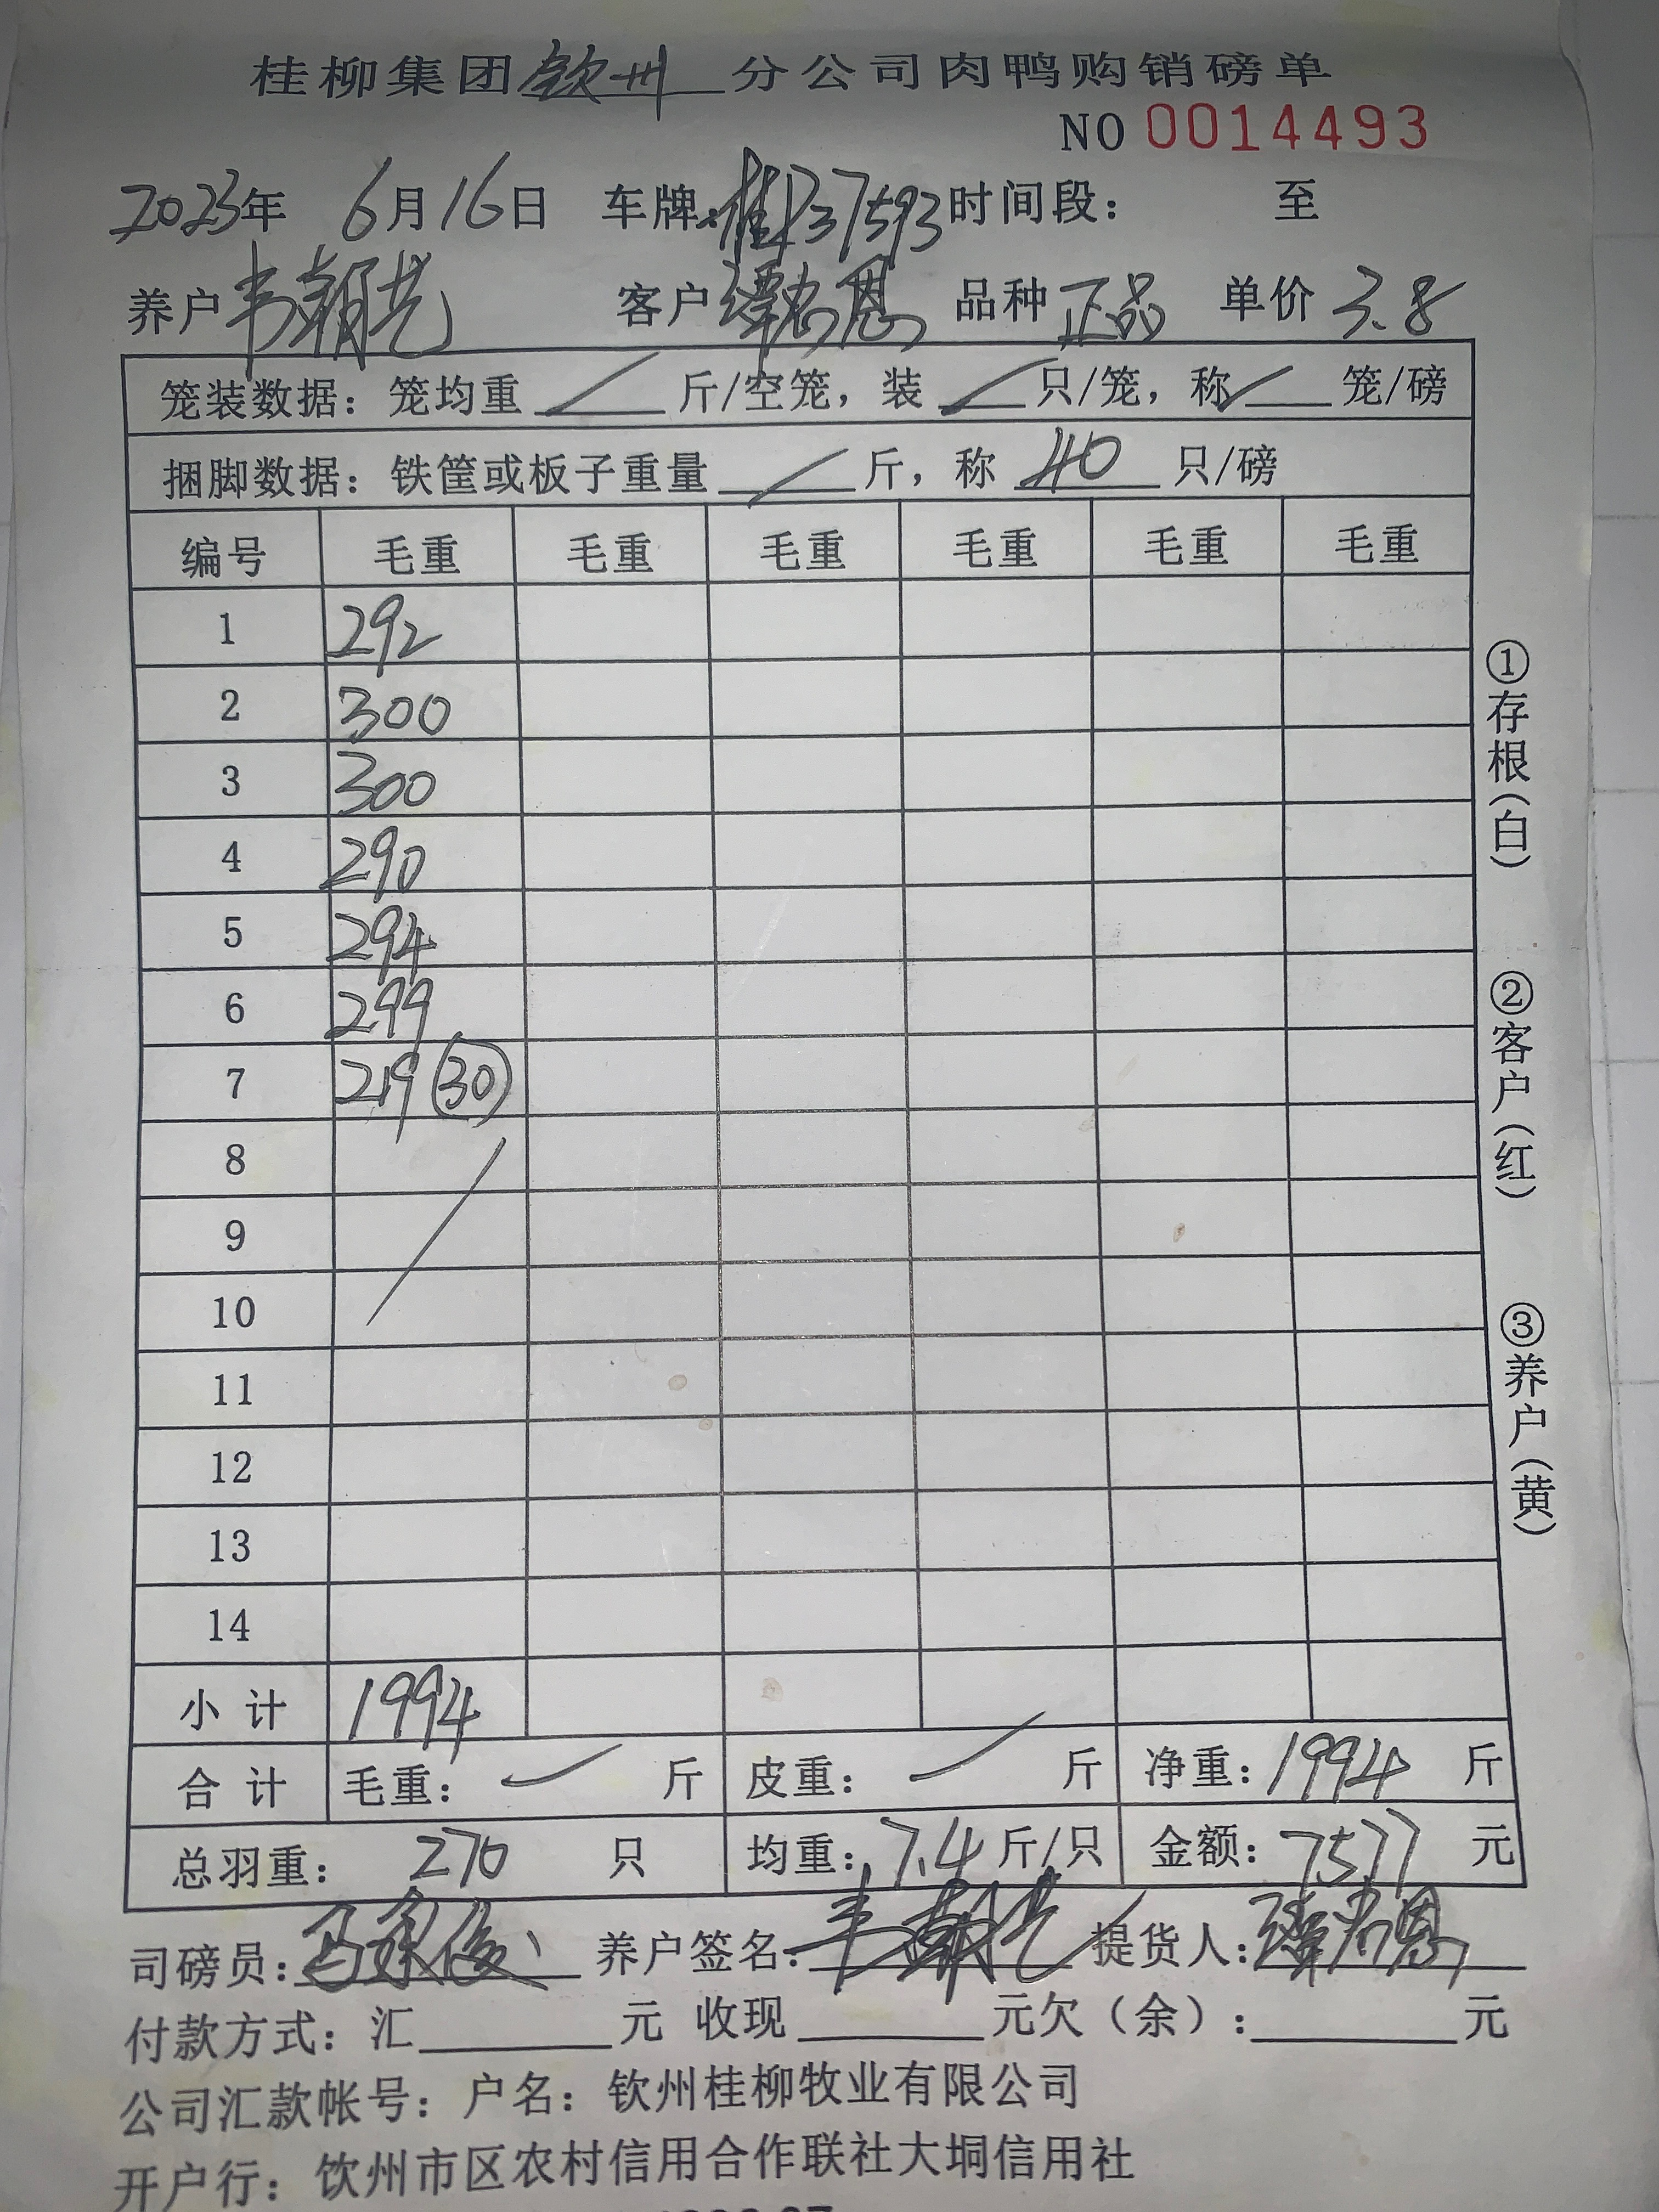 桂柳集团钦州分公司肉鸭购销磅单
NO 0014493
2023年 6月16日 车牌:桂P37593 时间段: 至
养户 韦朝光 客户 谭尚恩 品种 正品 单价 3.8
笼装数据：笼均重 / 斤/空笼，装 / 只/笼，称 / 笼/磅
捆脚数据：铁筐或板子重量 / 斤，称 40 只/磅
编号 毛重 毛重 毛重 毛重 毛重 毛重
1 292
2 300
3 300
4 290
5 294
6 299
7 219 (30)
8
9
10
11
12
13
14
小计 1994
合计 毛重: 斤 皮重: 斤 净重: 1994 斤
总羽重: 270 只 均重: 7.4 斤/只 金额: 7577 元
司磅员: 养户签名: 韦朝光 提货人: 谭尚恩
付款方式: 汇 元 收现 元欠（余）: 元
公司汇款帐号: 户名: 钦州桂柳牧业有限公司
开户行: 钦州市区农村信用合作联社大垌信用社
①存根(白)
②客户(红)
③养户(黄)